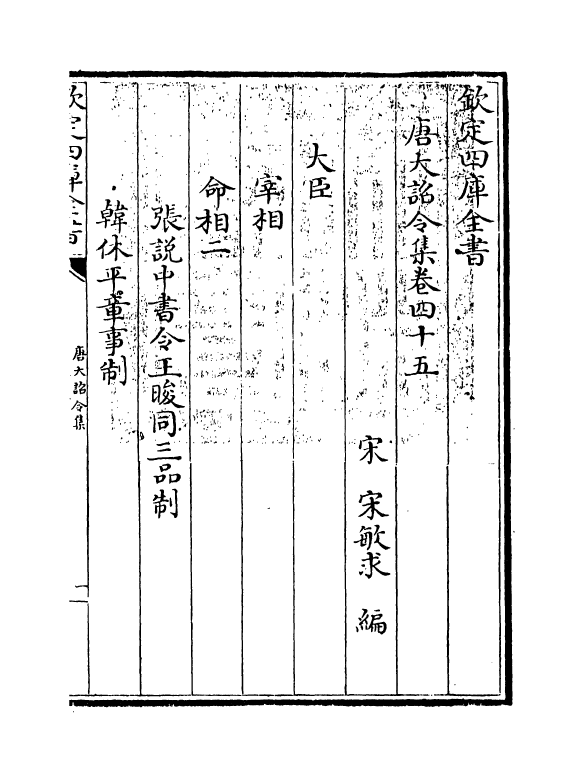 欽定四庫全書
唐大詔令集卷四十五
宋 宋敏求 編
大臣
宰相
命相二
張説中書令王晙同三品制
韓休平章事制
欽定四庫全書
唐大詔令集
一